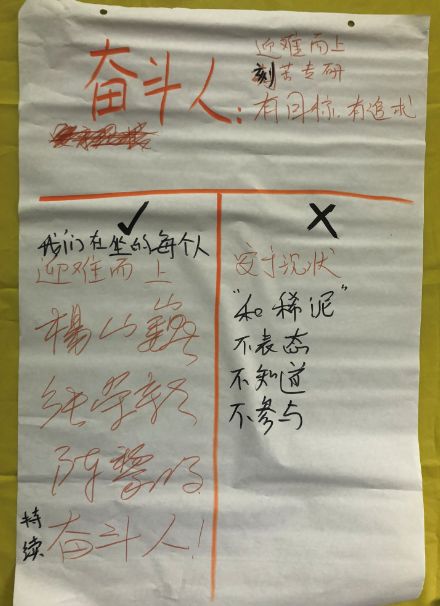 迎难而上
刻苦专研
奋斗人:有目标、有追求
✓
我们在坐的每个人
迎难而上
杨山巍
张荣斩
陈黎明
持续奋斗人!
✗
安于现状
“和稀泥”
不表态
不知道
不参与